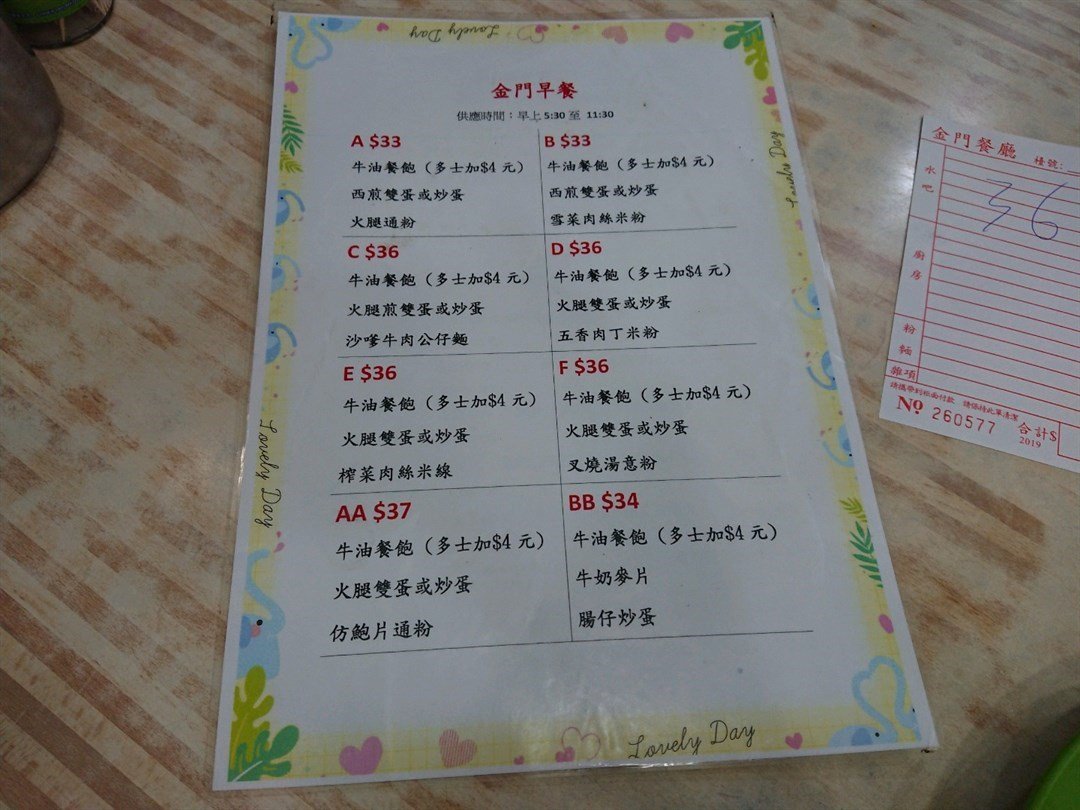 Lovely Day
金門早餐
供應時間：早上 5:30 至 11:30
A $33
牛油餐飽（多士加$4 元）
西煎雙蛋或炒蛋
火腿通粉
B $33
牛油餐飽（多士加$4 元）
西煎雙蛋或炒蛋
雪菜肉絲米粉
C $36
牛油餐飽（多士加$4 元）
火腿煎雙蛋或炒蛋
沙嗲牛肉公仔麵
D $36
牛油餐飽（多士加$4 元）
火腿雙蛋或炒蛋
五香肉丁米粉
E $36
牛油餐飽（多士加$4 元）
火腿雙蛋或炒蛋
榨菜肉絲米線
F $36
牛油餐飽（多士加$4 元）
火腿雙蛋或炒蛋
叉燒湯意粉
AA $37
牛油餐飽（多士加$4 元）
火腿雙蛋或炒蛋
仿鮑片通粉
BB $34
牛油餐飽（多士加$4 元）
牛奶麥片
腸仔炒蛋
Lovely Day
Lovely Day
Lovely Day
金門餐廳
檯號:
36
水吧
廚房
粉麵
雜項
請攜帶到柜面付款 請保持此單清潔
№ 260577
合計$
2019